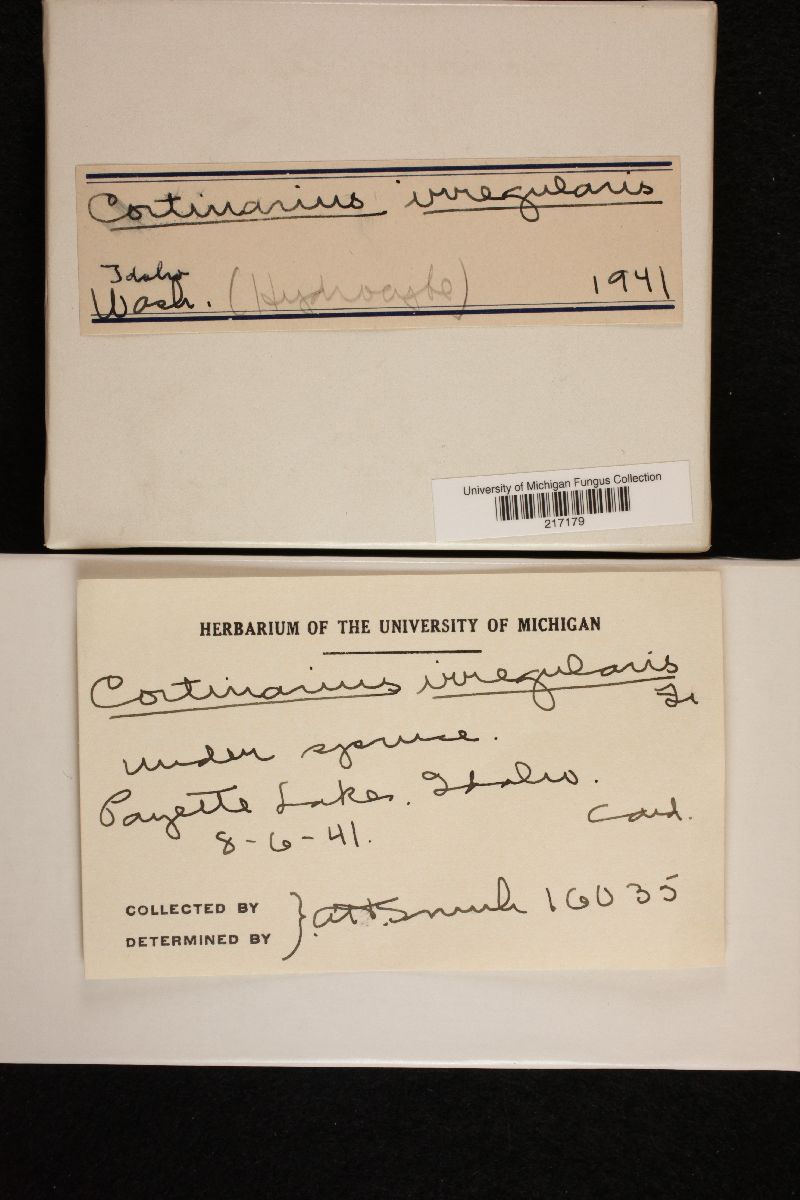 Cortinarius irregularis
Idaho
Wash. (Hydrocybe) 1941
University of Michigan Fungus Collection
217179
HERBARIUM OF THE UNIVERSITY OF MICHIGAN
Cortinarius irregularis
Fr
under spruce.
Payette Lakes. Idaho.
8-6-41. Card.
COLLECTED BY
DETERMINED BY } A.H. Smith 16035